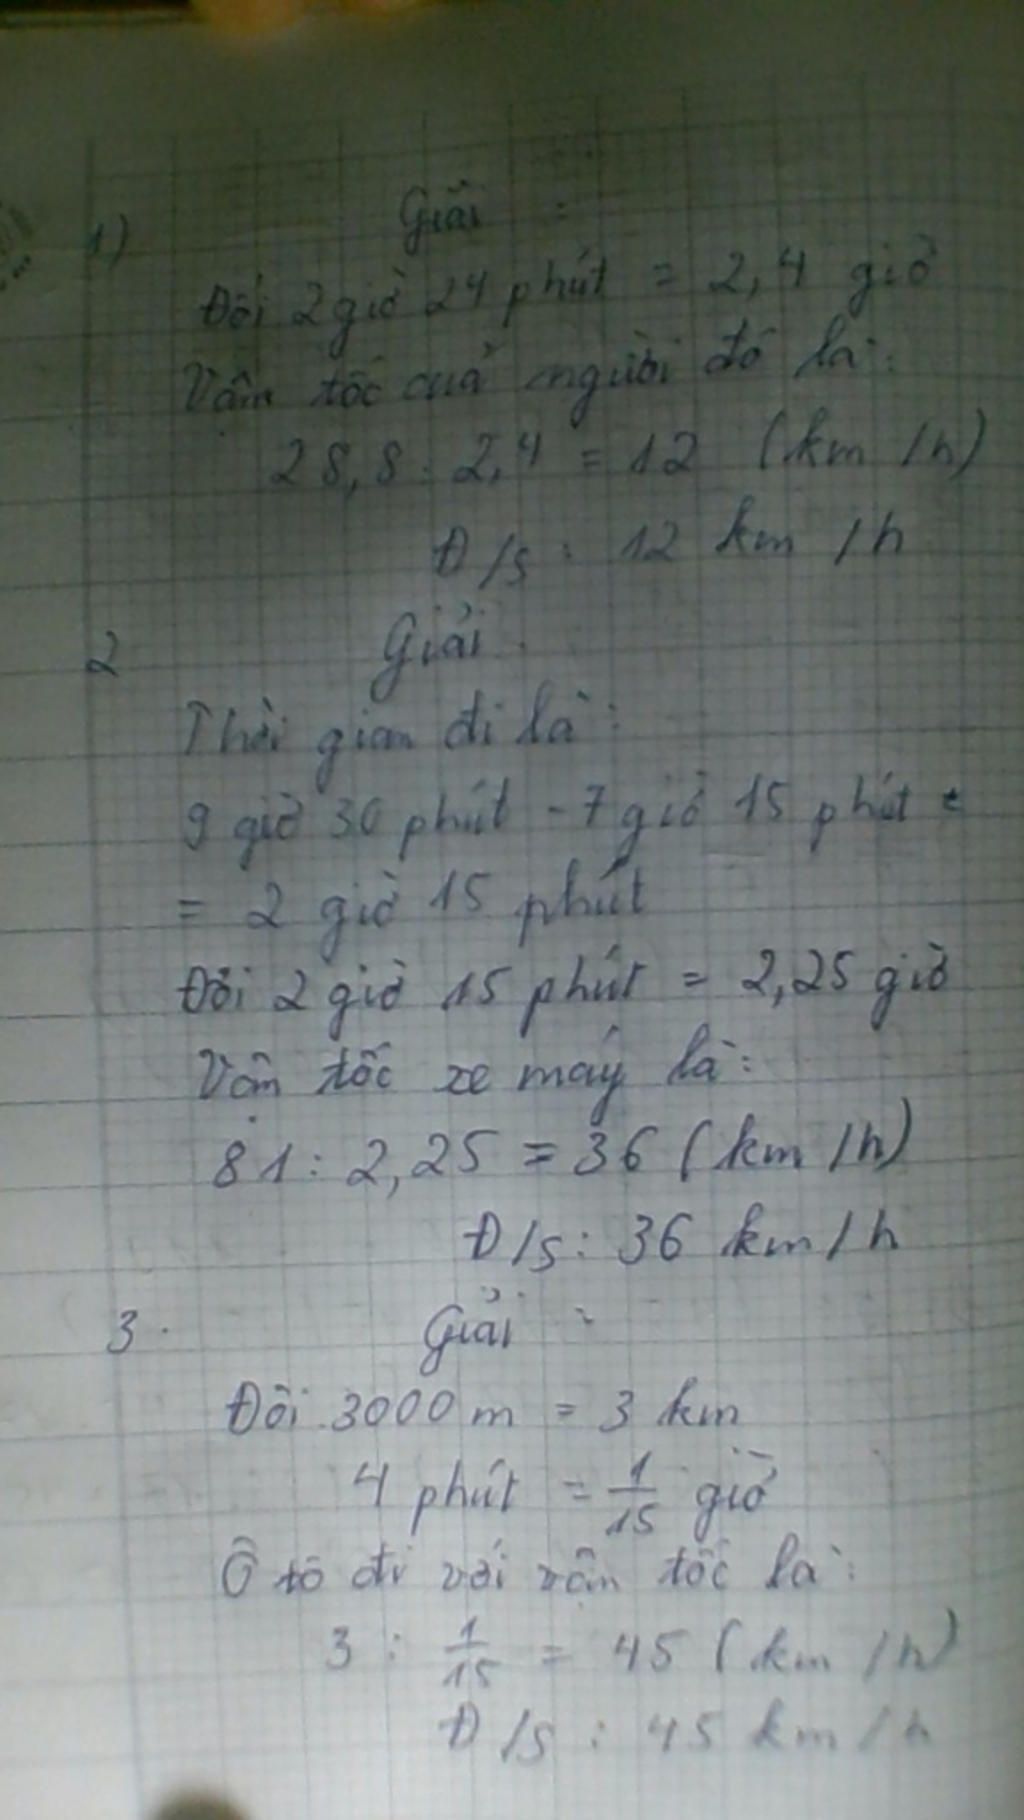 1) Giải :
Đổi 2 giờ 24 phút = 2,4 giờ
Vận tốc của người đó là:
28,8 : 2,4 = 12 (km/h)
Đ/s : 12 km/h
2 Giải
Thời gian đi là :
9 giờ 30 phút - 7 giờ 15 phút =
= 2 giờ 15 phút
Đổi 2 giờ 15 phút = 2,25 giờ
Vận tốc xe máy là :
81 : 2,25 = 36 (km/h)
Đ/s : 36 km/h
3. Giải :
Đổi 3000 m = 3 km
4 phút = 1/15 giờ
Ô tô đi với vận tốc là :
3 : 1/15 = 45 (km/h)
Đ/s : 45 km/h